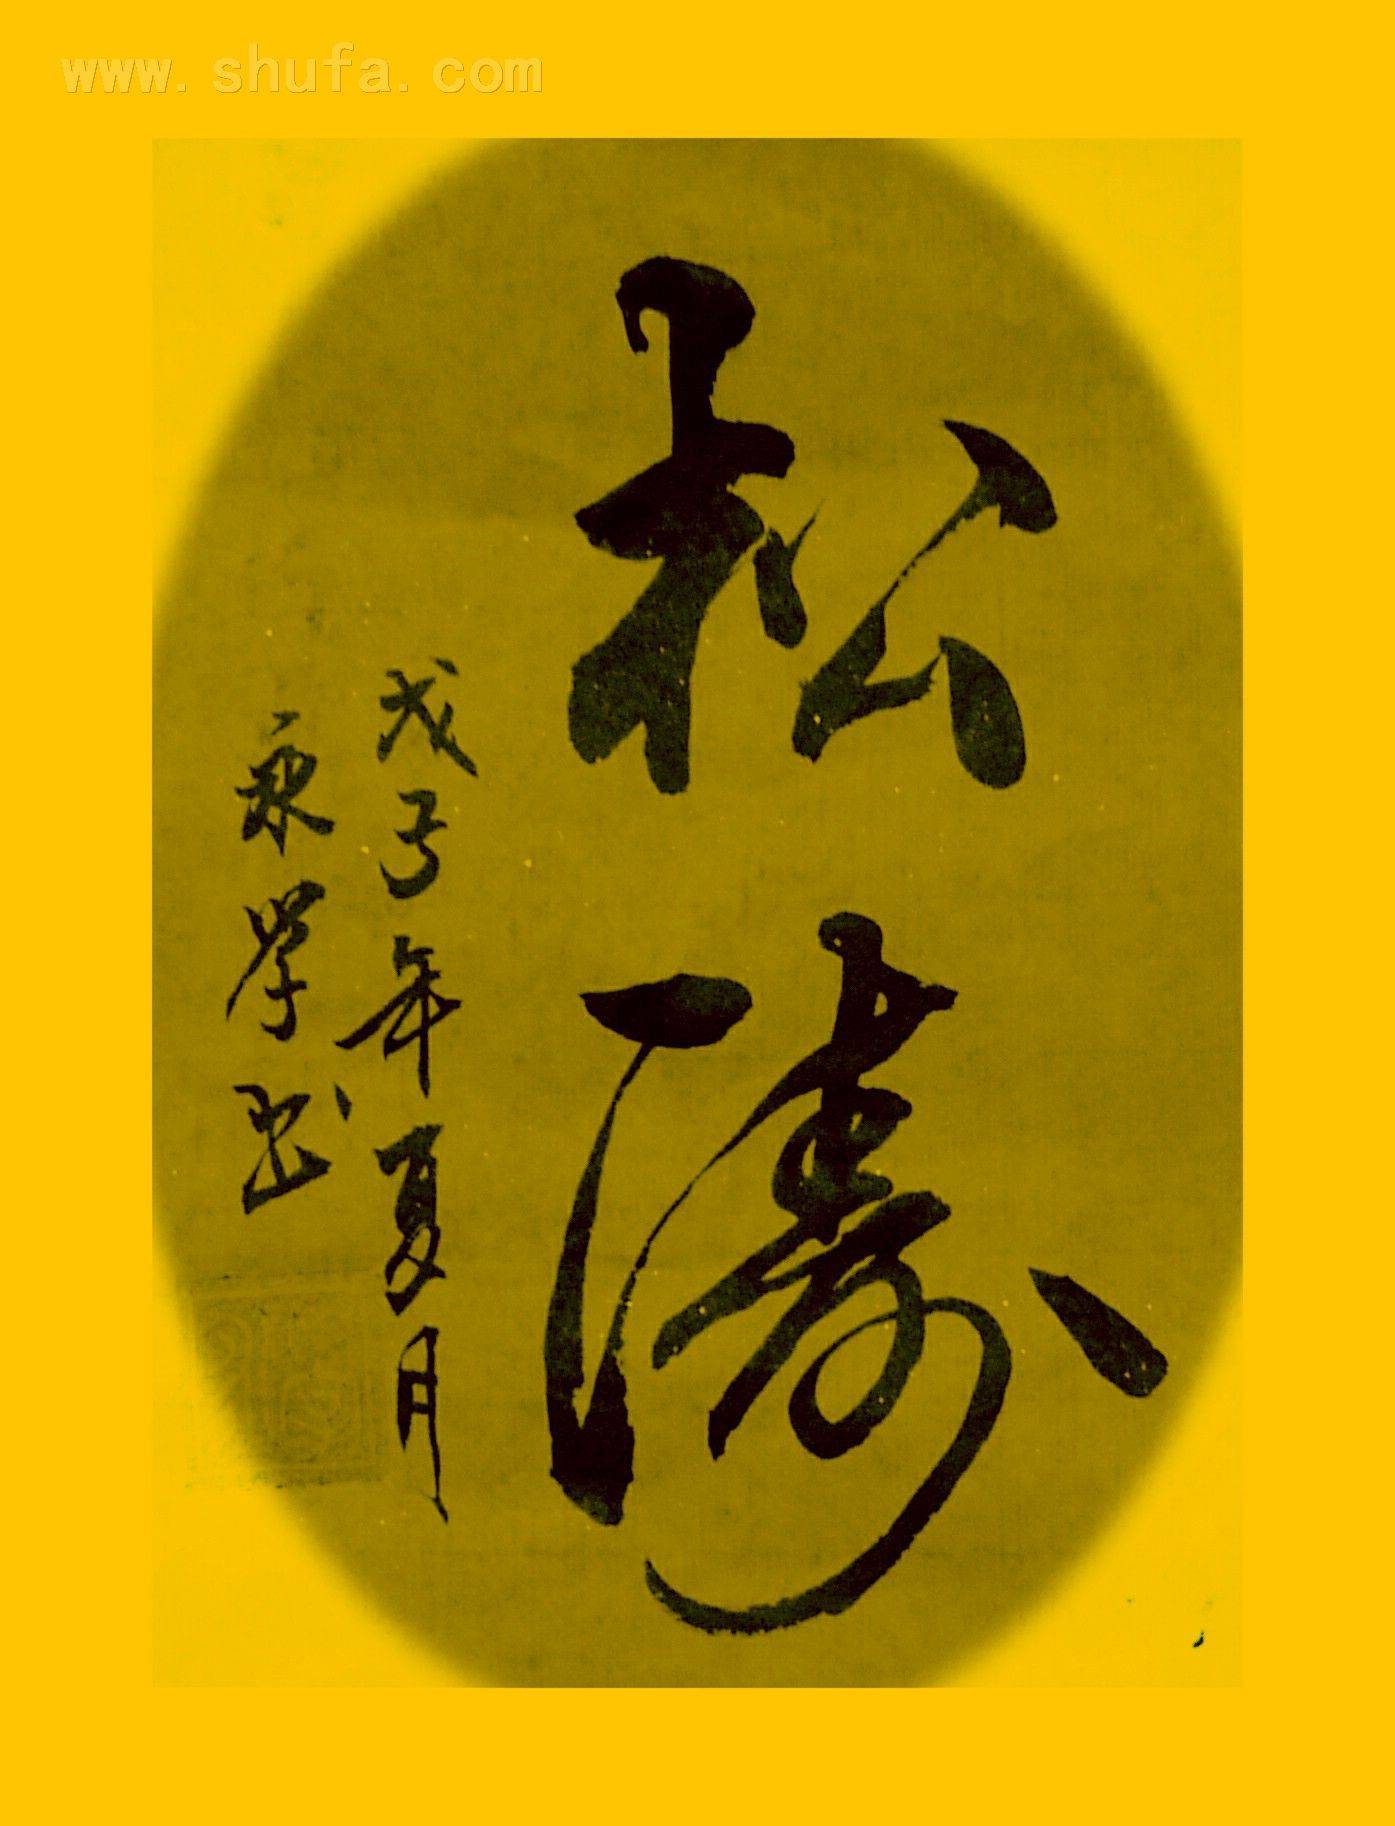 www.shufa.com
松涛
戊子年夏月
永学书